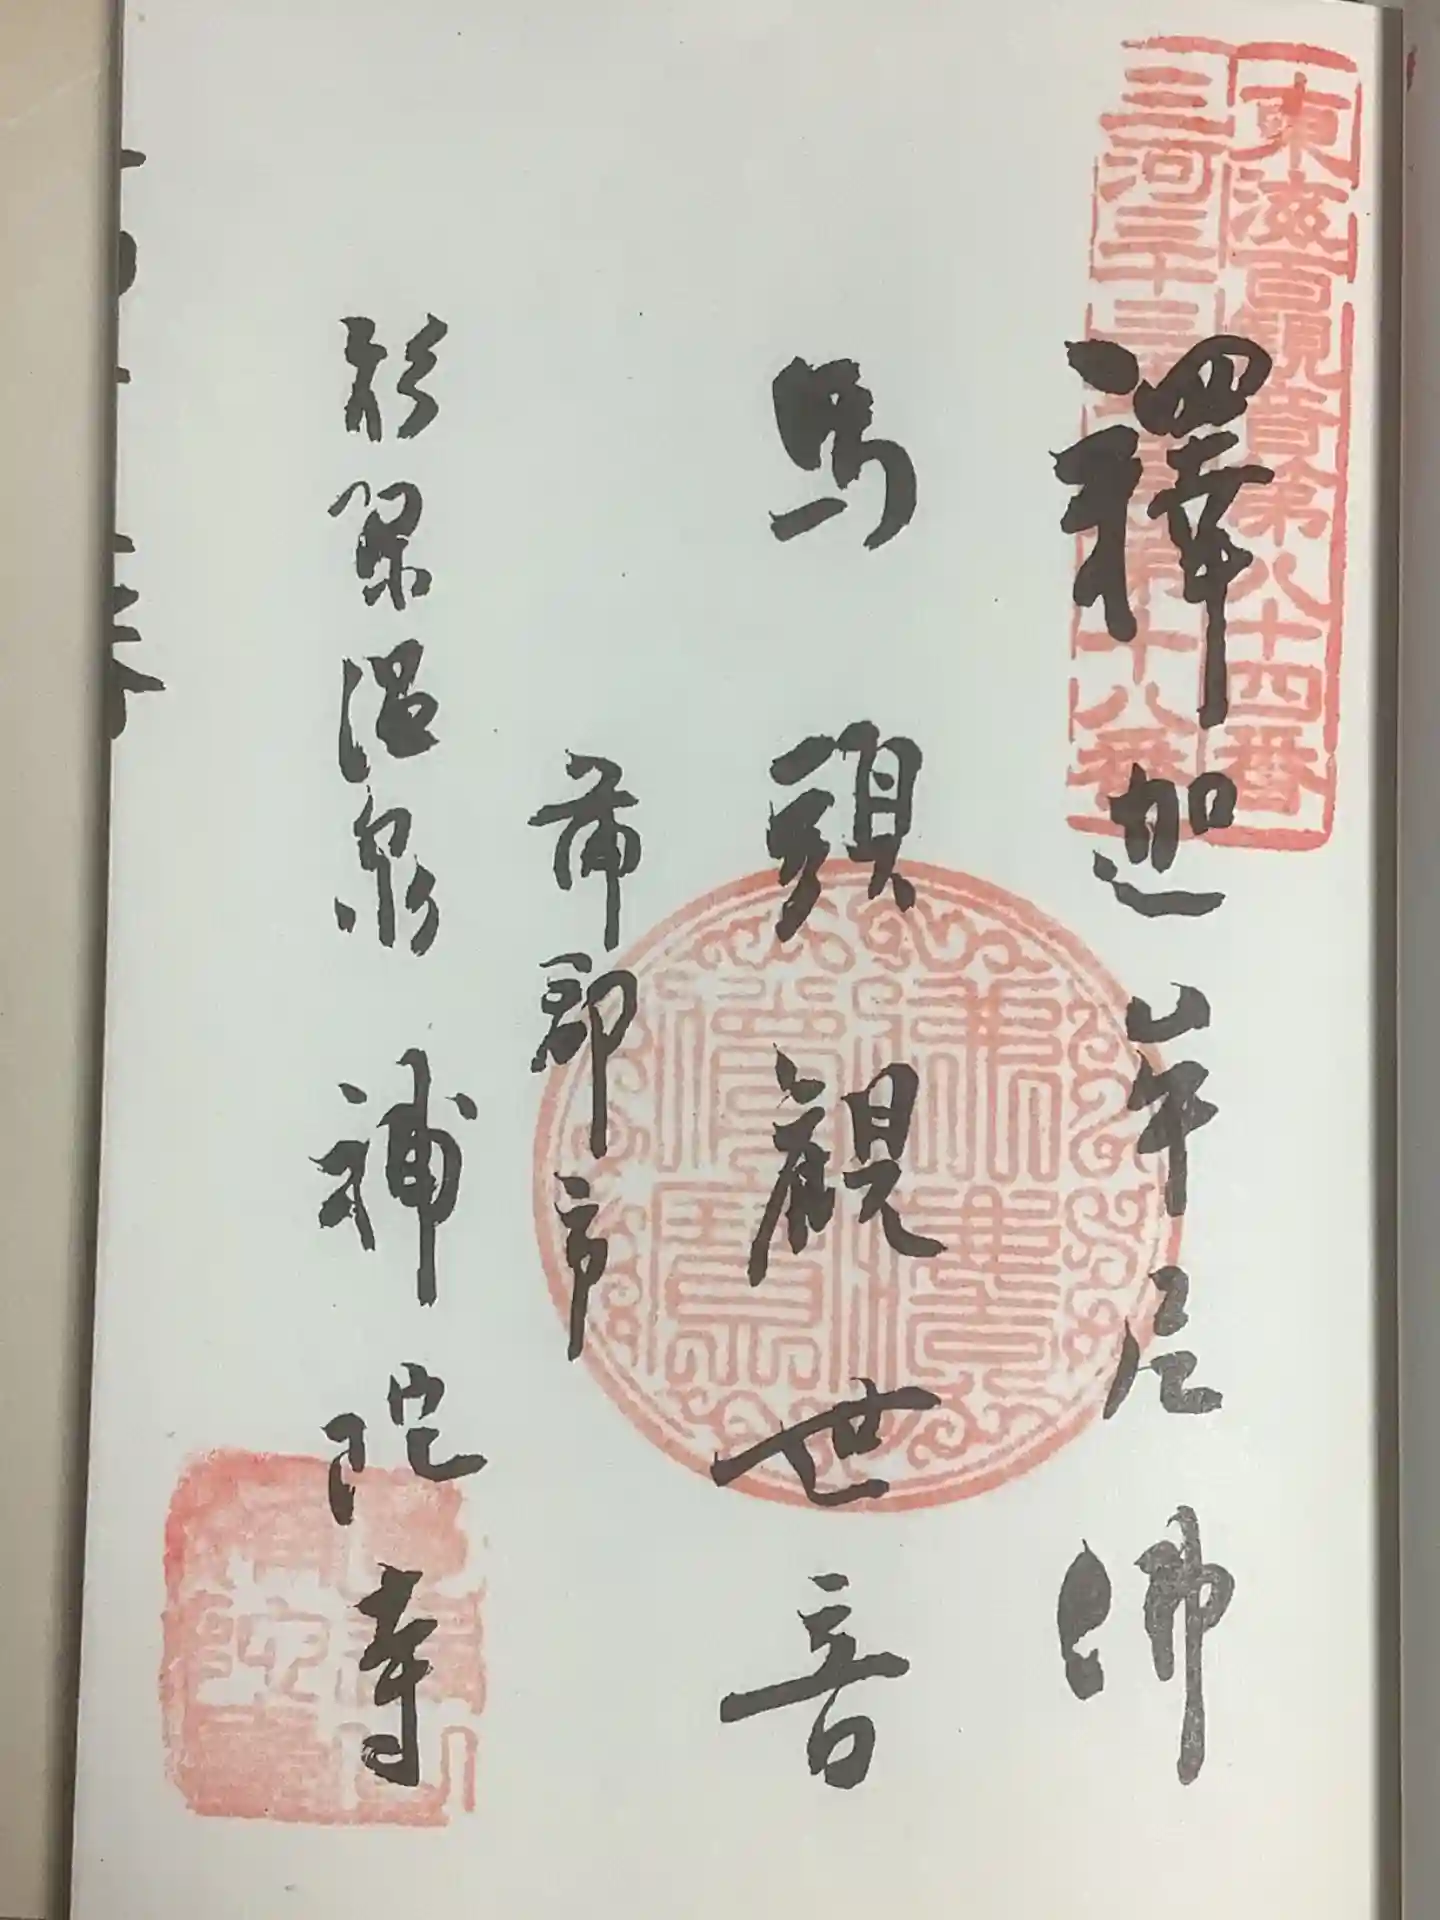 東海百観音第八十四番
三河三十三 第十八番
釋迦牟尼佛
馬頭観世音
蒲郡市
形原温泉 補陀寺